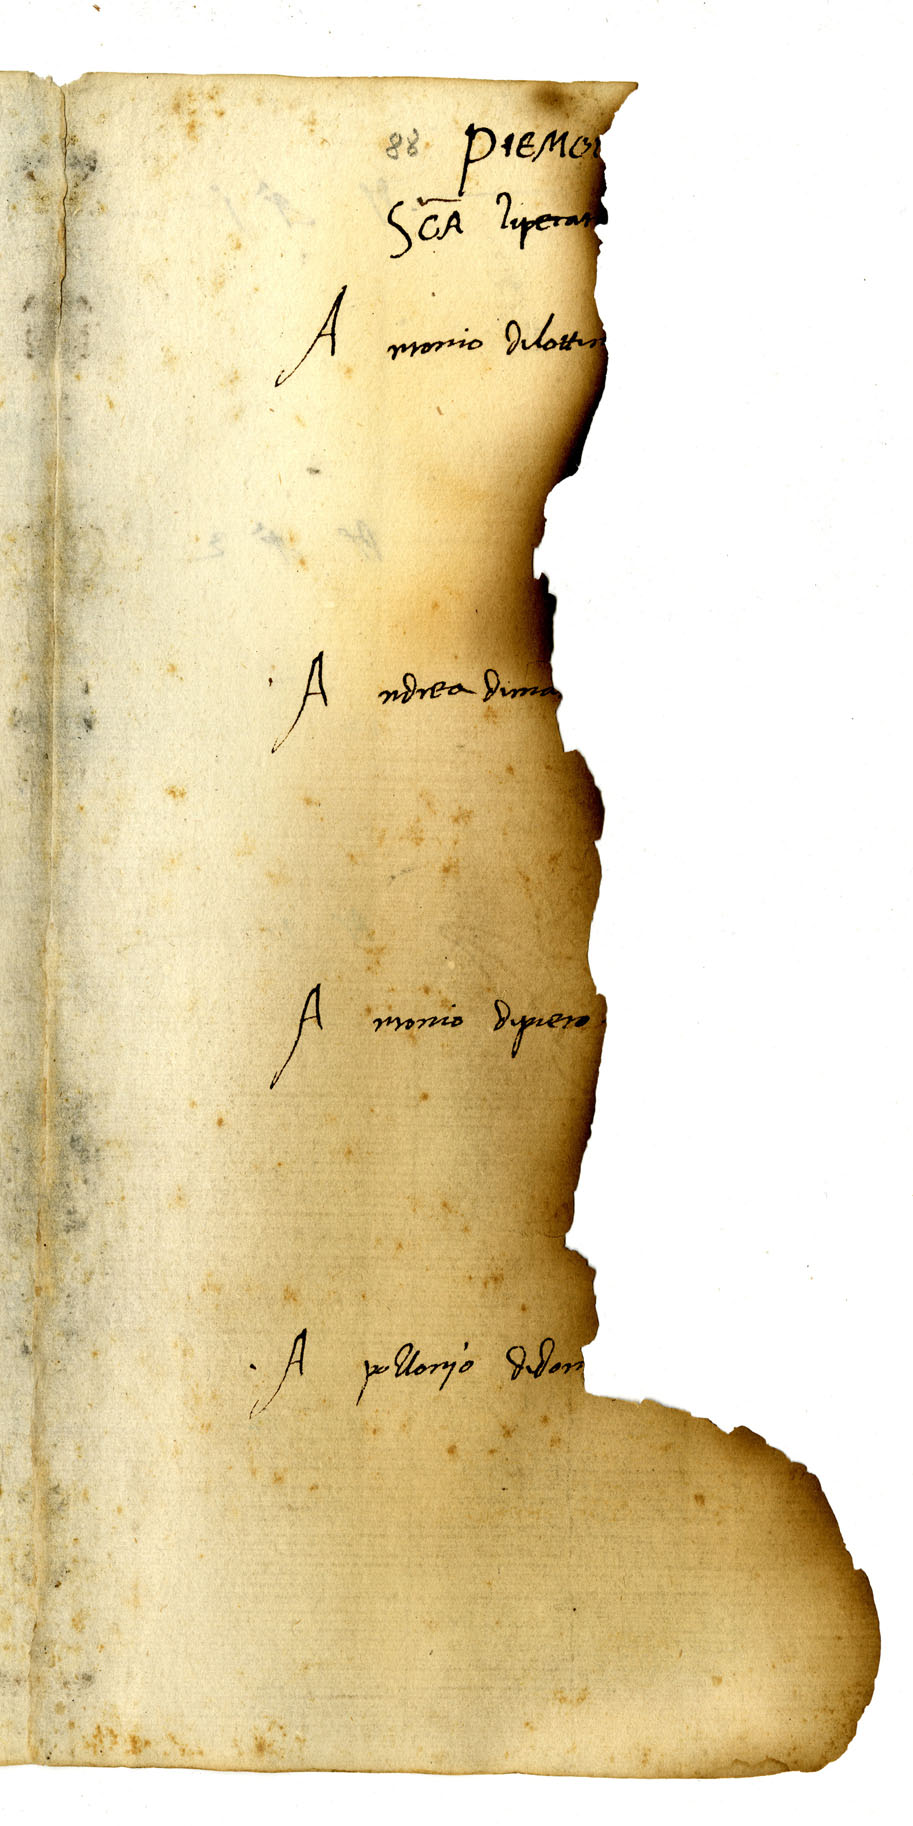 88 PIEMO
SCA liperat
A ntonio dilottin
A ndrea dima
A ntonio dipiero
A pollonjo didom